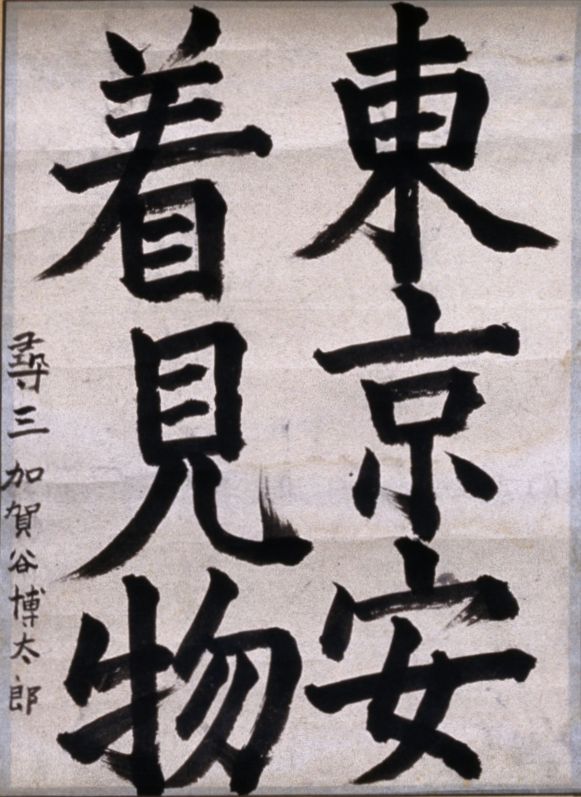 東京安
着見物
尋三加賀谷博太郎